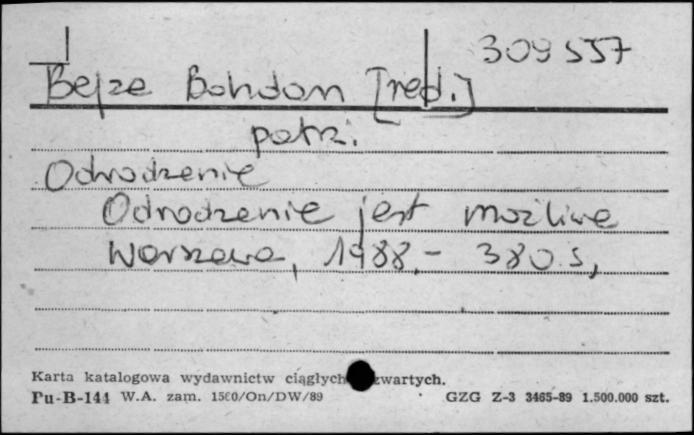 309557
Bejze Bohdan [red.]
patrz.
Odrodzenie
Odrodzenie jest możliwe
Warszawa, 1988,- 380 s,
Karta katalogowa wydawnictw ciągłych zwartych.
Pu-B-144 W.A. zam. 1560/On/DW/89 GZG Z-3 3465-89 1.500.000 szt.